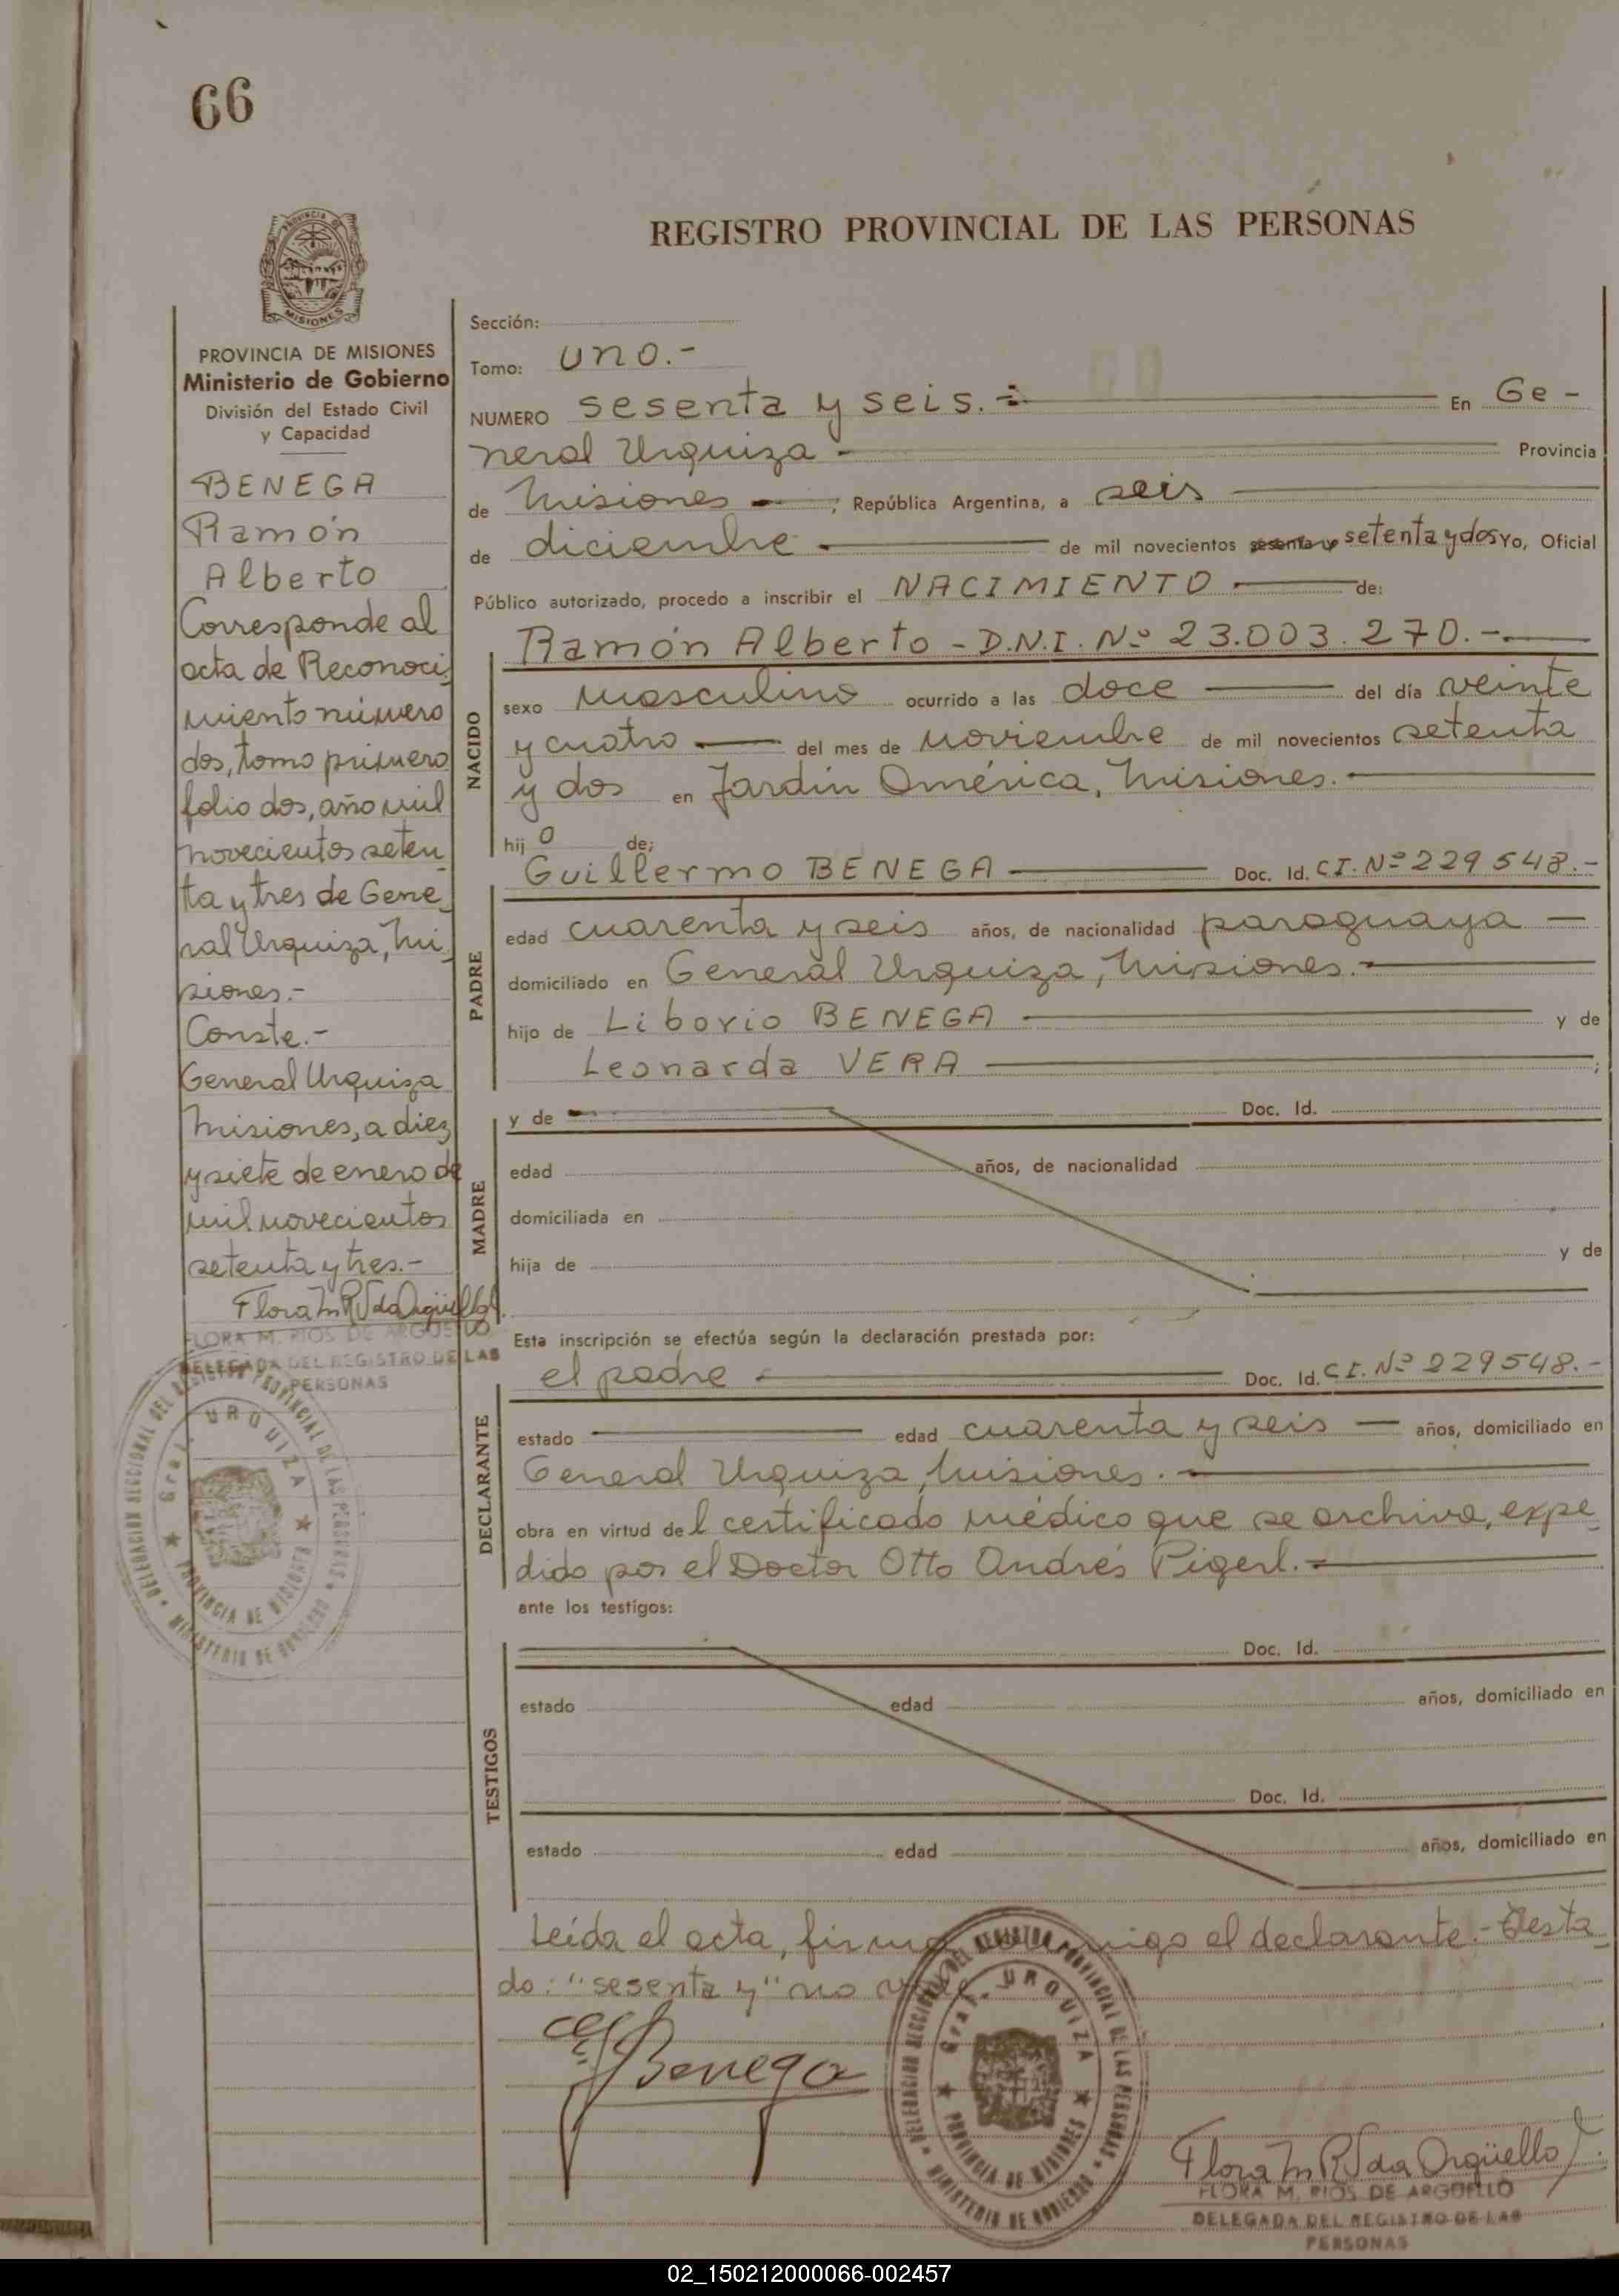 66
REGISTRO PROVINCIAL DE LAS PERSONAS
MISIONES
PROVINCIA DE MISIONES
Ministerio de Gobierno
División del Estado Civil
y Capacidad
BENEGA
Ramón
Alberto
Corresponde al
acta de Reconoci-
miento número
dos, tomo primero
folio dos, año mil
novecientos seten-
ta y tres de Gene-
ral Urquiza, Mi-
siones.-
Conste.-
General Urquiza
Misiones, a diez
y siete de enero de
mil novecientos
setenta y tres.-
FLORA M. RIOS DE ARGÜELLO
DELEGADA DEL REGISTRO DE LAS
PERSONAS
DELEGACION SECCIONAL DEL REGISTRO PROVINCIAL DE LAS PERSONAS
Gral. URQUIZA
PROVINCIA DE MISIONES
MINISTERIO DE GOBIERNO
Sección:
Tomo: uno.-
NUMERO sesenta y seis.- En Ge-
neral Urquiza Provincia
de Misiones ; República Argentina, a seis
de diciembre de mil novecientos sesenta y setenta y dos Yo, Oficial
Público autorizado, procedo a inscribir el NACIMIENTO de:
NACIDO
Ramón Alberto - D.N.I. Nº 23.003.270.-
sexo masculino ocurrido a las doce del día veinte
y cuatro del mes de noviembre de mil novecientos setenta
y dos en Jardín América, Misiones.-
hij o de;
PADRE
Guillermo BENEGA Doc. Id. C.I. Nº 229548.-
edad cuarenta y seis años, de nacionalidad paraguaya
domiciliado en General Urquiza, Misiones.-
hijo de Liborio BENEGA y de
Leonarda VERA ;
MADRE
y de Doc. Id.
edad años, de nacionalidad
domiciliada en
hija de y de
Esta inscripción se efectúa según la declaración prestada por:
DECLARANTE
el padre Doc. Id. C.I. Nº 229548.-
estado edad cuarenta y seis años, domiciliado en
General Urquiza, Misiones.-
obra en virtud del certificado médico que se archiva, expe-
dido por el Doctor Otto Andrés Pigerl.-
ante los testigos:
TESTIGOS
Doc. Id.
estado edad años, domiciliado en
Doc. Id.
estado edad años, domiciliado en
Leída el acta, firma conmigo el declarante.- Testa-
do: "sesenta y" no vale
Benega
DELEGACION SECCIONAL DEL REGISTRO PROVINCIAL DE LAS PERSONAS
Gral. URQUIZA
PROVINCIA DE MISIONES
MINISTERIO DE GOBIERNO
FLORA M. RIOS DE ARGÜELLO
DELEGADA DEL REGISTRO DE LAS
PERSONAS
02_150212000066-002457